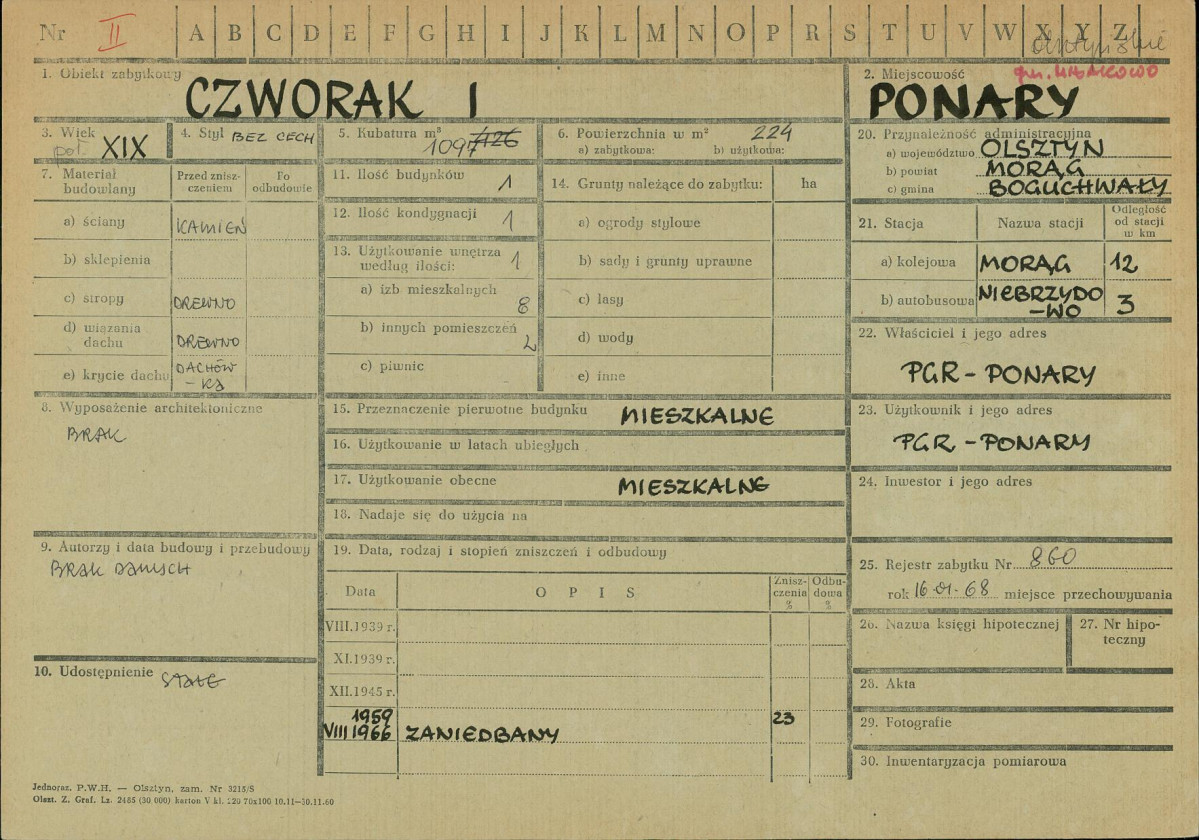 Nr II A B C D E F G H I J K L M N O P R S T U V W X Y Z
olsztyńskie
gm. MIŁAKOWO
1. Obiekt zabytkowy
CZWORAK I
2. Miejscowość
PONARY
3. Wiek
poł. XIX
4. Styl BEZ CECH
5. Kubatura m³
1097 1126
6. Powierzchnia w m² 224
a) zabytkowa: b) użytkowa:
7. Materiał budowlany
Przed zniszczeniem
Po odbudowie
a) ściany KAMIEŃ
b) sklepienia
c) stropy DREWNO
d) wiązania dachu DREWNO
e) krycie dachu DACHÓW-KA
8. Wyposażenie architektoniczne
BRAK
9. Autorzy i data budowy i przebudowy
BRAK DANYCH
10. Udostępnienie STAŁE
11. Ilość budynków 1
12. Ilość kondygnacji 1
13. Użytkowanie wnętrza według ilości: 1
a) izb mieszkalnych 8
b) innych pomieszczeń 2
c) piwnic
14. Grunty należące do zabytku: ha
a) ogrody stylowe
b) sady i grunty uprawne
c) lasy
d) wody
e) inne
15. Przeznaczenie pierwotne budynku MIESZKALNE
16. Użytkowanie w latach ubiegłych
17. Użytkowanie obecne MIESZKALNE
18. Nadaje się do użycia na
19. Data, rodzaj i stopień zniszczeń i odbudowy
Data OPIS Zniszczenia % Odbudowa %
VIII.1939 r.
XI.1939 r.
XII.1945 r.
1959 23
VIII 1966 ZANIEDBANY
20. Przynależność administracyjna
a) województwo OLSZTYN
b) powiat MORĄG
c) gmina BOGUCHWAŁY
21. Stacja Nazwa stacji Odległość od stacji w km
a) kolejowa MORĄG 12
b) autobusowa NIEBRZYDO-WO 3
22. Właściciel i jego adres
PGR - PONARY
23. Użytkownik i jego adres
PGR - PONARY
24. Inwestor i jego adres
25. Rejestr zabytku Nr 860
rok 16-01-68 miejsce przechowywania
26. Nazwa księgi hipotecznej
27. Nr hipoteczny
28. Akta
29. Fotografie
30. Inwentaryzacja pomiarowa
Jednoraz. P.W.H. — Olsztyn, zam. Nr 3215/S
Olszt. Z. Graf. Lz. 2485 (30 000) karton V kl. 220 70x100 10.11—30.11.60